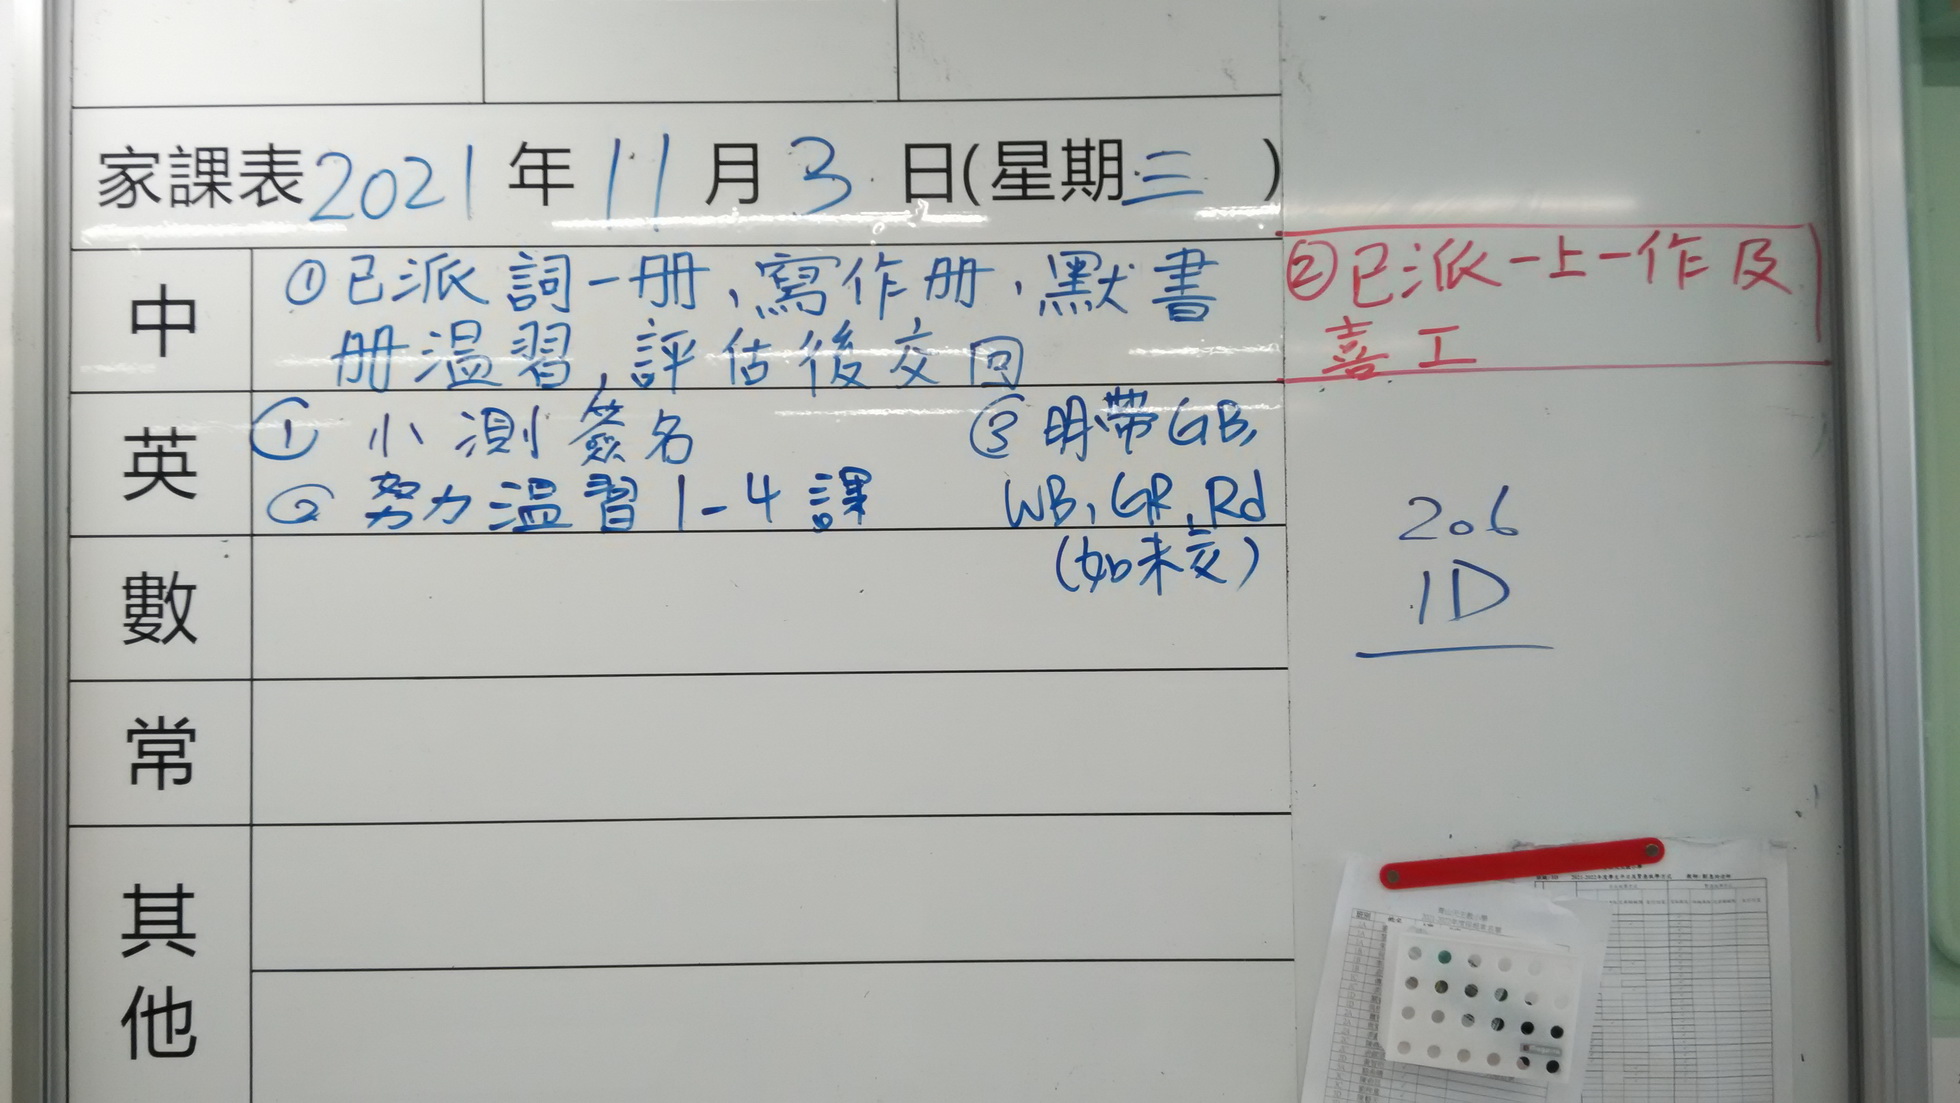 家課表2021年11月3日(星期三)
中
①已派詞一册、寫作册、默書
册温習,評估後交回
②已派一上一作及
喜工
英
① 小測簽名
② 努力温習1-4課
③ 明帶GB,
WB, GR, Rd
(如未交)
數
常
其他
206
1D